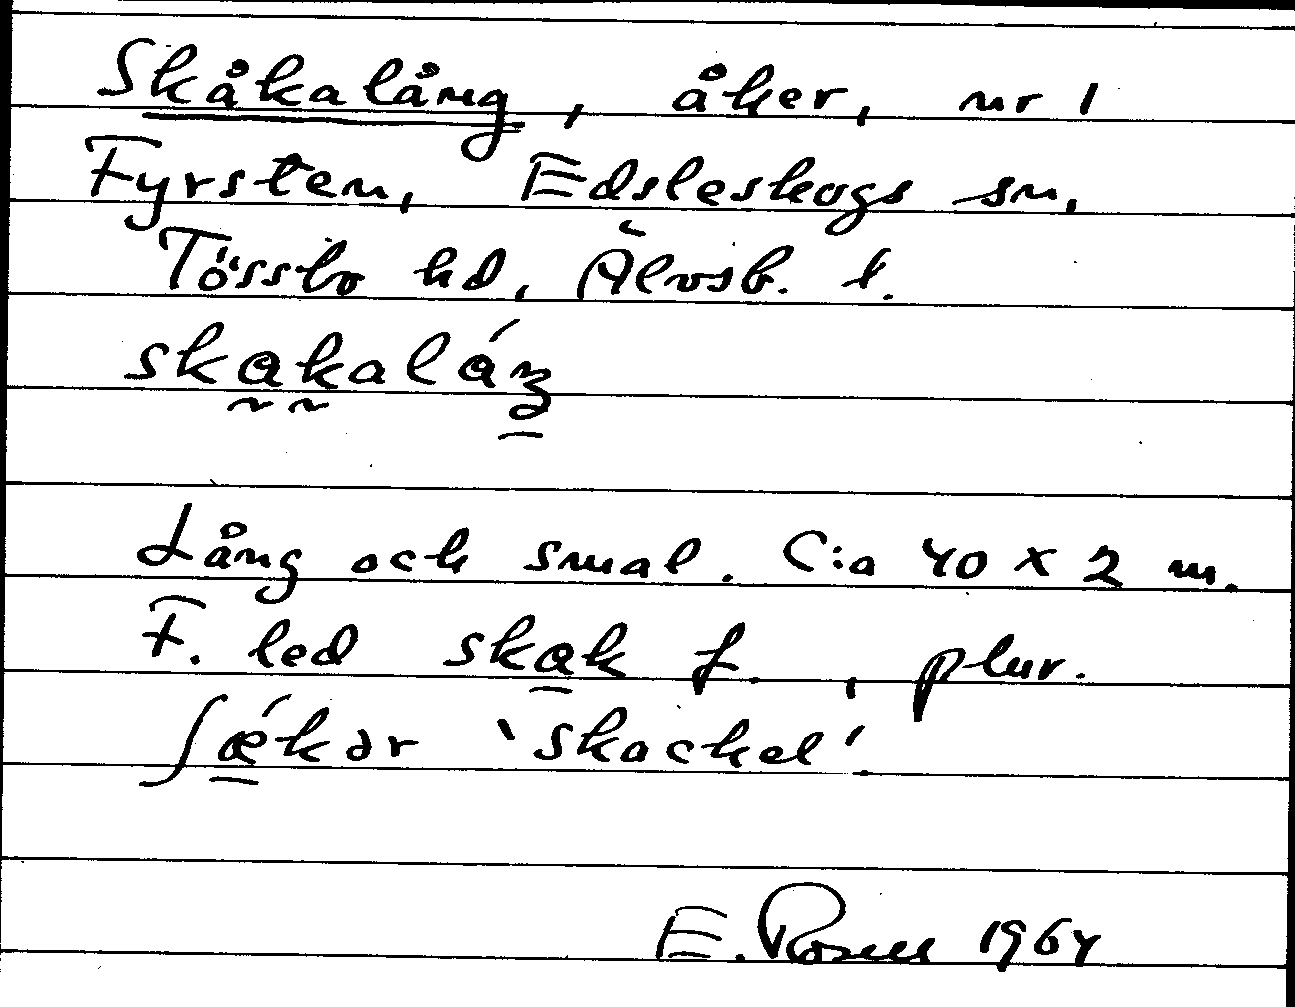 Skåkalång, åker, nr 1
Fyrsten, Edsleskogs sn,
Tössbo hd, Älvsb. l.
skakaláŋ
Lång och smal. C:a 40 x 2 m.
F. led skak f., plur.
ʃǽkər 'skackel'
E. 1964